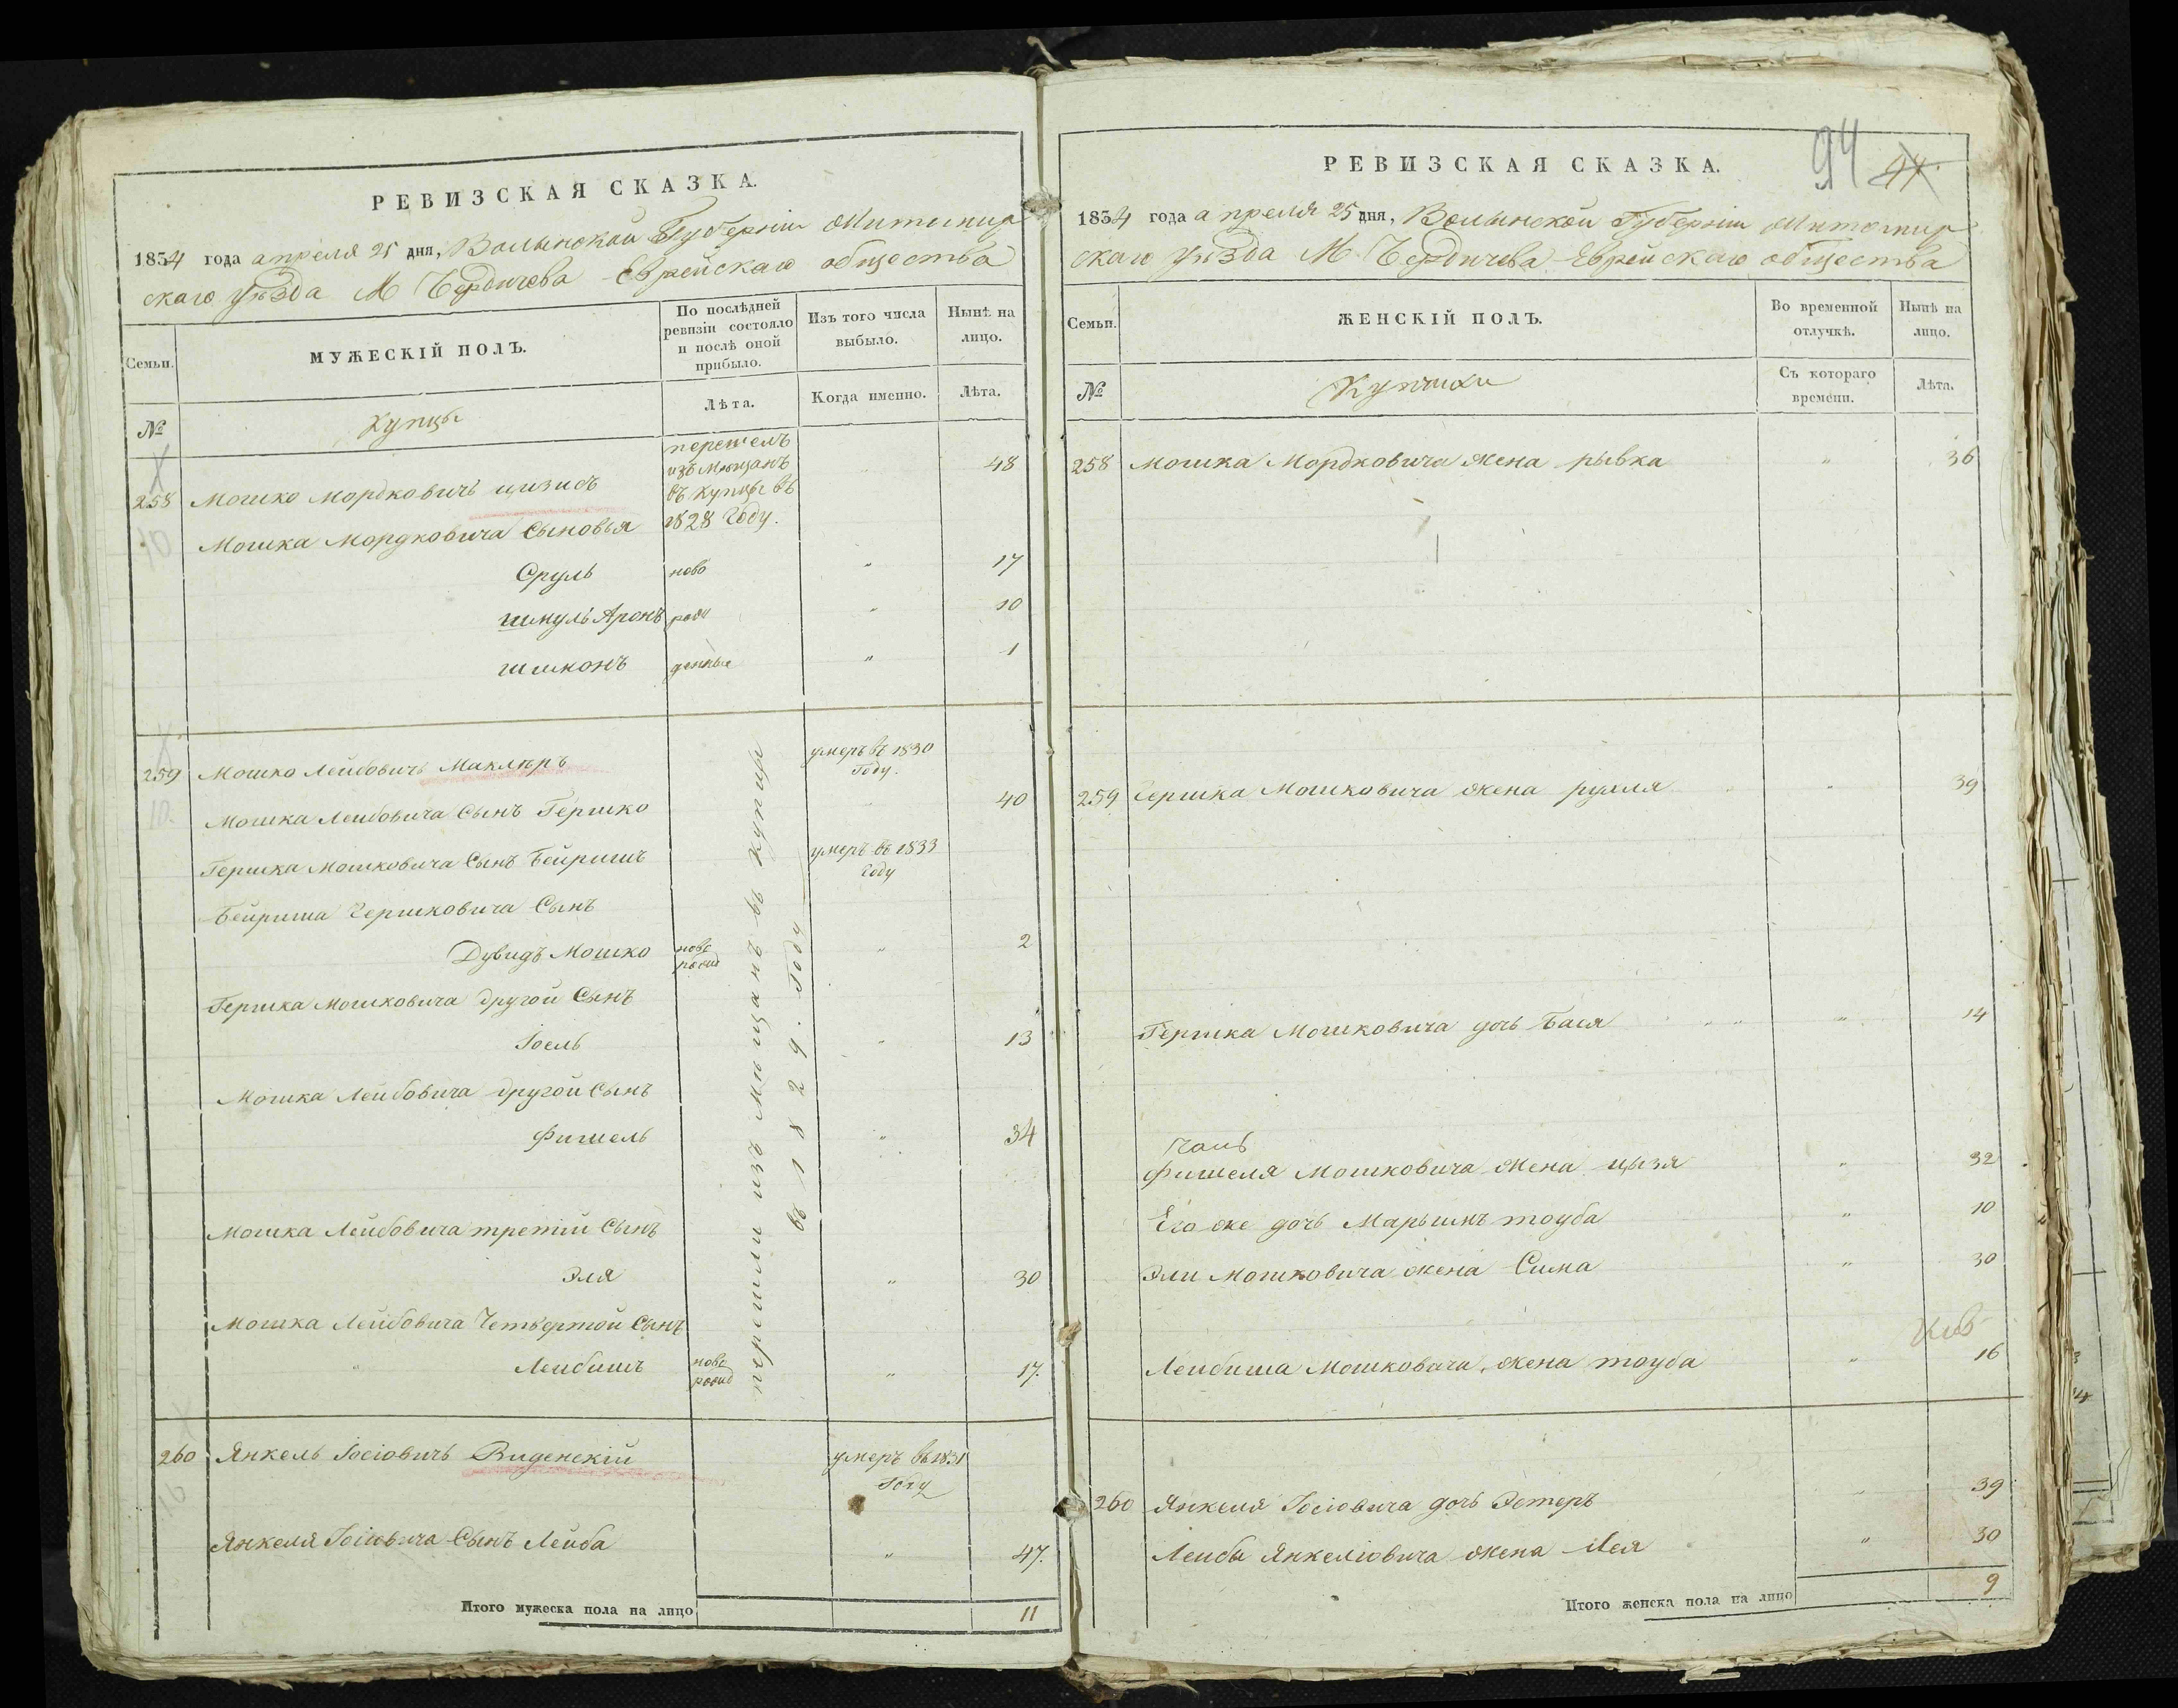 РЕВИЗСКАЯ СКАЗКА.
1834 года апреля 25 дня, Волынской Губерніи Житомир
скаго уѣзда М Бердичева Еврейскаго общества
Семьи.
МУЖЕСКІЙ ПОЛЪ.
По послѣдней ревизіи состояло и послѣ оной прибыло.
Изъ того числа выбыло.
Нынѣ на лицо.
№
Купцы
Лѣта.
Когда именно.
Лѣта.
перешелъ
изъ Мѣщанъ
въ купцы въ
1828 Году.
258 Мошко Мордковичъ 48
Мошка Мордковича Сыновья
Сруль ново " 17
Шмуль Аронъ рож " 10
Шимонъ денные " 1
259 Мошко Лейбовичъ Маклеръ умеръ въ 1830
Году.
Мошка Лейбовича Сынъ Гершко 40
Гершка Мошковича Сынъ Бейришъ умеръ въ 1833
Году
Бейриша Гершковича Сынъ
Дувидъ Мошко ново " 2
рожд
Гершка Мошковича другой Сынъ
Іоель " 13
Мошка Лейбовича другой Сынъ
Фишель " 34
Мошка Лейбовича третій Сынъ
Эля " 30
Мошка Лейбовича Четвертой Сынъ
" Лейбишъ ново " 17.
рожд
перешли изъ Мѣщанъ въ купцы
въ 1829. Году
260 Янкель Іосіовичъ Виденскій умеръ въ 1831
Году
Янкеля Іосіовича Сынъ Лейба " 47.
Итого мужеска пола на лицо 11
РЕВИЗСКАЯ СКАЗКА.
94 44
1834 года апреля 25 дня, Волынской Губерніи Житомир
скаго уѣзда М. Бердичева Еврейскаго общества
Семьи.
ЖЕНСКІЙ ПОЛЪ.
Во временной отлучкѣ.
Нынѣ на лицо.
№
Купчихи
Съ котораго времени.
Лѣта.
258 Мошка Мордковича жена рывка " 36
259 Гершка Мошковича жена рухля " 39
Гершка Мошковича дочь Бася " 14
Фишеля Мошковича жена цызя " 32
Его же дочь Марьимъ тоуба " 10
Эли Мошковича жена Сима " 30
Лейбиша Мошковича жена тоуба " 16
260 Янкеля Іосіовича дочь Эстеръ 39
Лейбы Янкеліовича жена Лея " 30
Итого женска пола на лицо 9